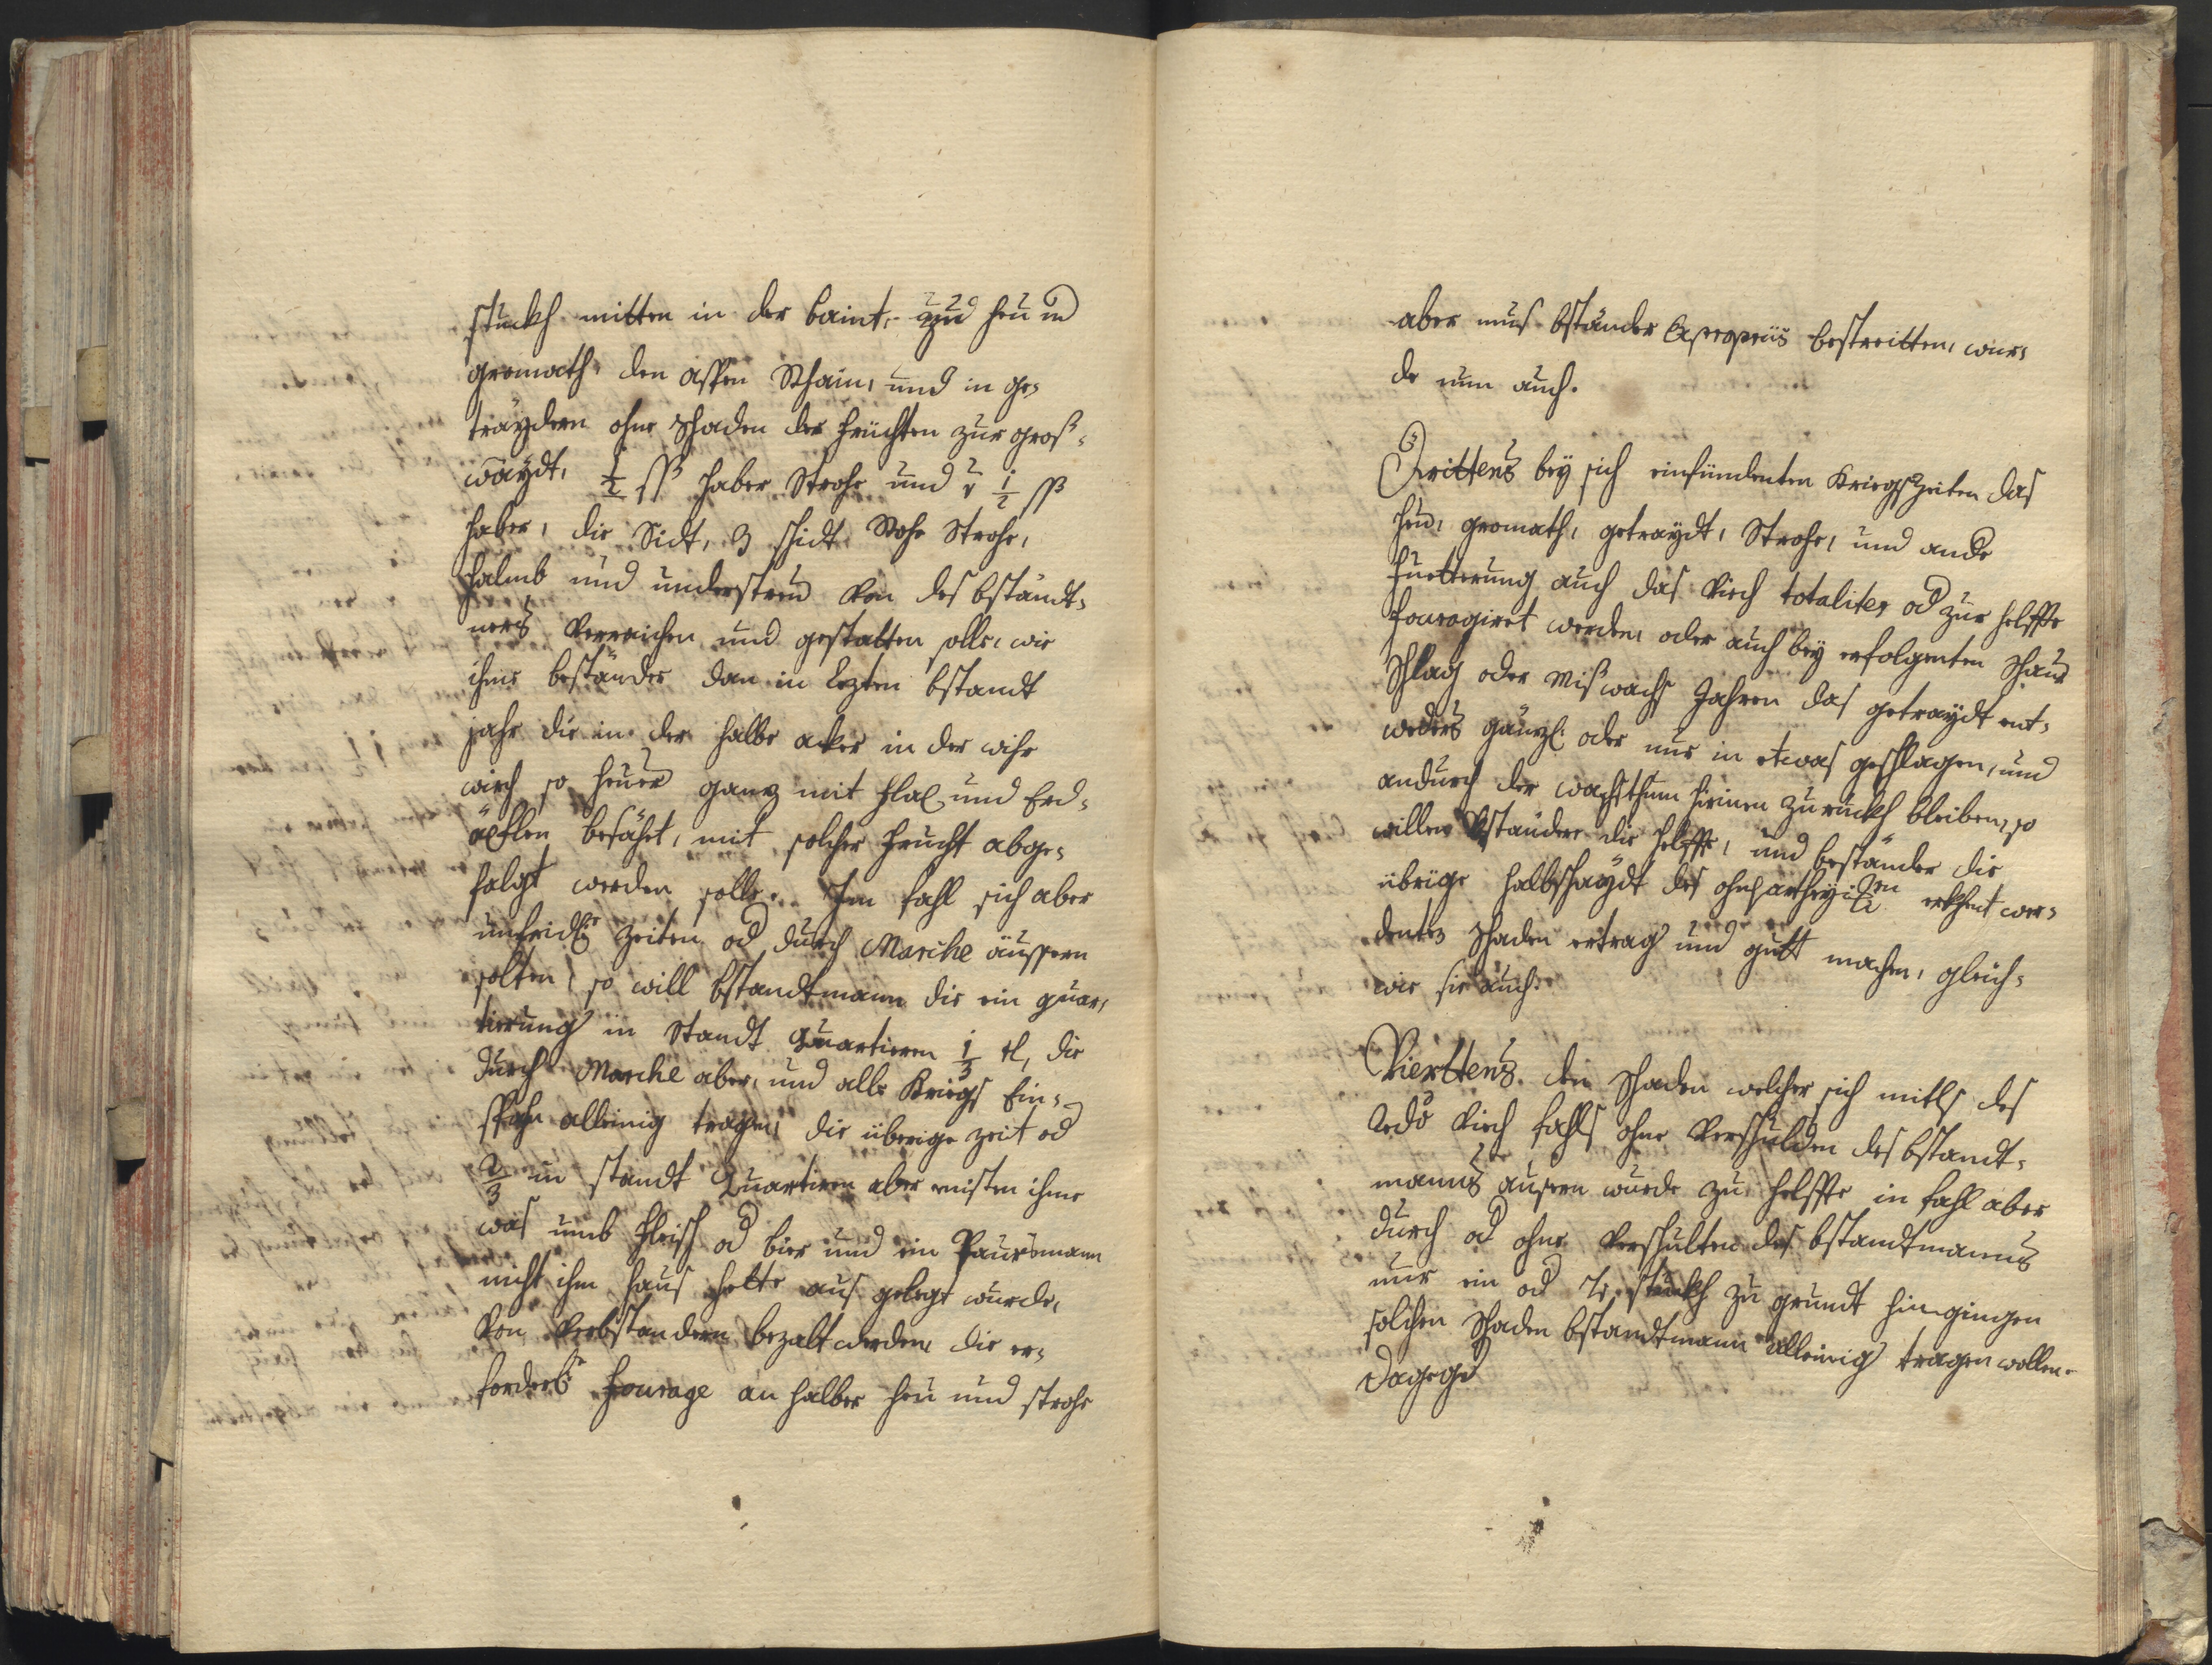 stuckh mitten in der baint, zu heu und
gromath den assen Rhain, und in ge-
träydern ohne schaden der früchten zur groß-
wäydt, 1/2 ß haber Strohe und 1/2 ß
haber, die Sidt, 3 schidt Rohe Strohe,
halmb und understreu von des bständt-
ners verraichen und gestatten solle, wie
ihme beständer dan in Lezten bstandt
jahr die in der halbe acker in der
so heuer ganz mit flax und Erd-
äpflen besähet, mit solcher frucht abge-
folgt werden solle. Im fahl sich aber
unfridl: zeiten od durch Marche äussern
solten, so will bstandtmann die ein quar-
tierung in Standt Quartieren 1/3 tl, die
durch Marche aber, und alle Kriegs Ein-
alleinig tragen, die übrige zeit od
2/3 in standt Quartiren aber ihme
was umb fleisch od bier und ein Paursmann
nicht ihm haus hette aus gelegt wurde,
von verbständern bezalt werden, die er-
forderl: fourage an halber heu und strohe
aber mus bständer Ex propriis bestreitten, wur-
de nun auch.
Drittens bey sich einfündenten Kriegszeiten das
heu, gromath, getraydt, Strohe, und ande
fuetterung auch das Viech totaliter od zur helffte
fouragiret werden, oder auch bey erfolgenten Schaur
Schlag oder Mißwachs Jahren das getraydt ent-
weders gänzl: oder nur in etwas geschlagen, und
andurch der wachsthum hirinen zuruckh bleiben, so
willen Vständer die helffte, und beständer die
übrige halbschaydt des ohnpartheyi: erkhent wer-
denten schaden ertrag und gutt machen, gleich-
wie sie auch.
Vierttens den schaden welcher sich mitls des
Redo Viech fahls ohne Verschulden des bstandt-
manns äussern wurde zu helffte in fahl aber
durch od ohne Verschulten des bstandtmanns
nur ein od stuckh zu grundt hingingen
solchen schaden bstandtmann alleinig tragen wollen.
Dagegen